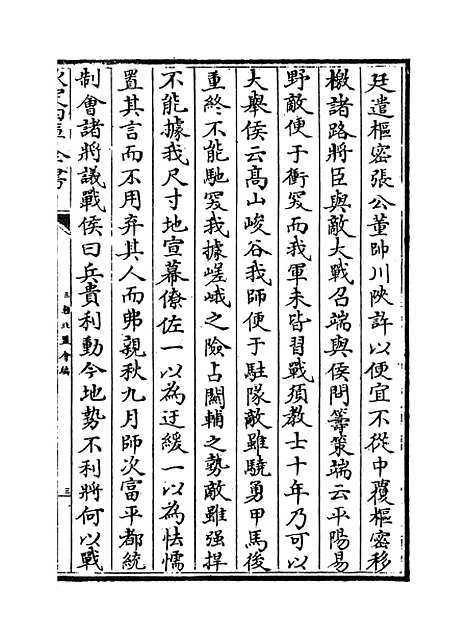 廷遣樞密張公董帥川陜許以便宜不從中覆樞密移
檄諸路將臣與敵大戰召端與侯問籌策端云平陽易
野敵便于衝突而我軍未皆習戰須教士十年乃可以
大舉侯云髙山峻谷我師便于駐隊敵雖驍勇甲馬後
重終不能馳突我據嵯峨之險占關輔之勢敵雖强捍
不能據我尺寸地宣幕僚佐一以為迂緩一以為怯懦
置其言而不用弃其人而弗親秋九月師次富平都統
制會諸將議戰侯曰兵貴利動今地勢不利將何以戰
欽定四庫全書
三朝北盟會編
三